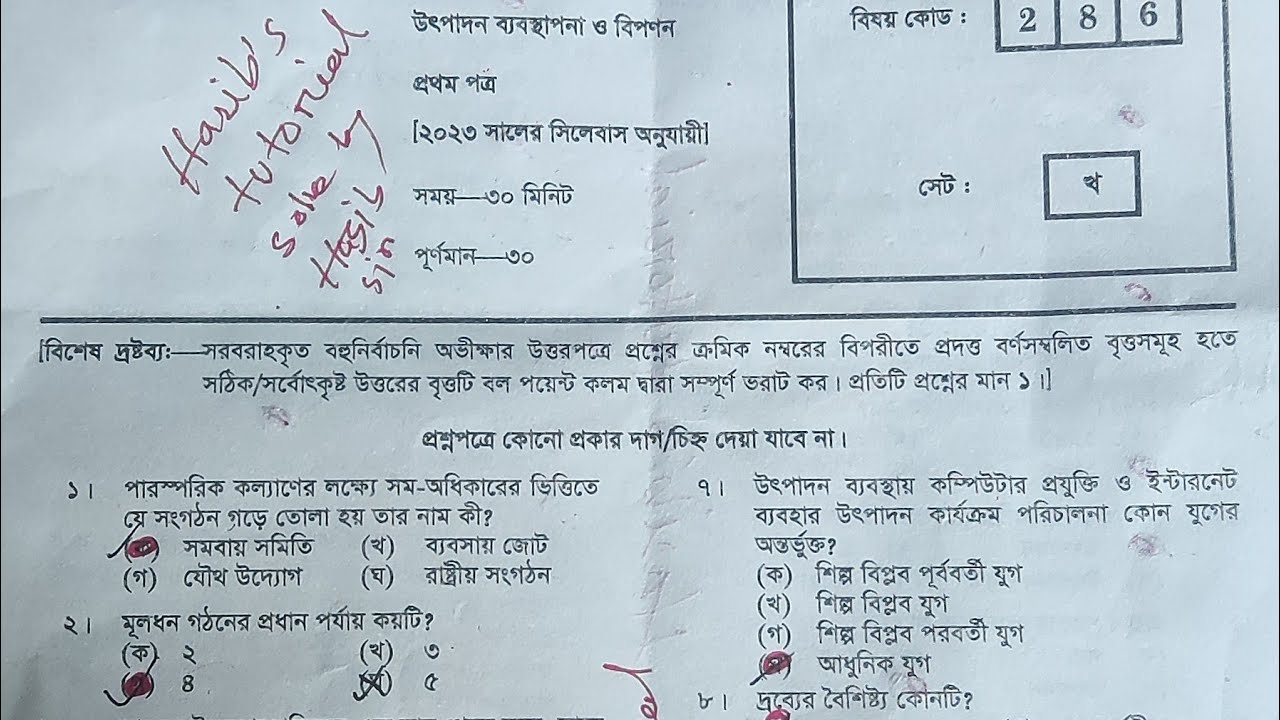 উৎপাদন ব্যবস্থাপনা ও বিপণন
বিষয় কোড : 2 8 6
প্রথম পত্র
[২০২৩ সালের সিলেবাস অনুযায়ী]
সময়—৩০ মিনিট
সেট : খ
পূর্ণমান—৩০
Hasib's
tutorial
solve by
Hasib
sir
[বিশেষ দ্রষ্টব্য:—সরবরাহকৃত বহুনির্বাচনি অভীক্ষার উত্তরপত্রে প্রশ্নের ক্রমিক নম্বরের বিপরীতে প্রদত্ত বর্ণসম্বলিত বৃত্তসমূহ হতে
সঠিক/সর্বোৎকৃষ্ট উত্তরের বৃত্তটি বল পয়েন্ট কলম দ্বারা সম্পূর্ণ ভরাট কর। প্রতিটি প্রশ্নের মান ১।]
প্রশ্নপত্রে কোনো প্রকার দাগ/চিহ্ন দেয়া যাবে না।
১। পারস্পরিক কল্যাণের লক্ষ্যে সম-অধিকারের ভিত্তিতে
যে সংগঠন গড়ে তোলা হয় তার নাম কী?
সমবায় সমিতি (খ) ব্যবসায় জোট
(গ) যৌথ উদ্যোগ (ঘ) রাষ্ট্রীয় সংগঠন
২। মূলধন গঠনের প্রধান পর্যায় কয়টি?
(ক) ২ (খ) ৩
৪ ৫
৭। উৎপাদন ব্যবস্থায় কম্পিউটার প্রযুক্তি ও ইন্টারনেট
ব্যবহার উৎপাদন কার্যক্রম পরিচালনা কোন যুগের
অন্তর্ভুক্ত?
(ক) শিল্প বিপ্লব পূর্ববর্তী যুগ
(খ) শিল্প বিপ্লব যুগ
(গ) শিল্প বিপ্লব পরবর্তী যুগ
আধুনিক যুগ
৮। দ্রব্যের বৈশিষ্ট্য কোনটি?